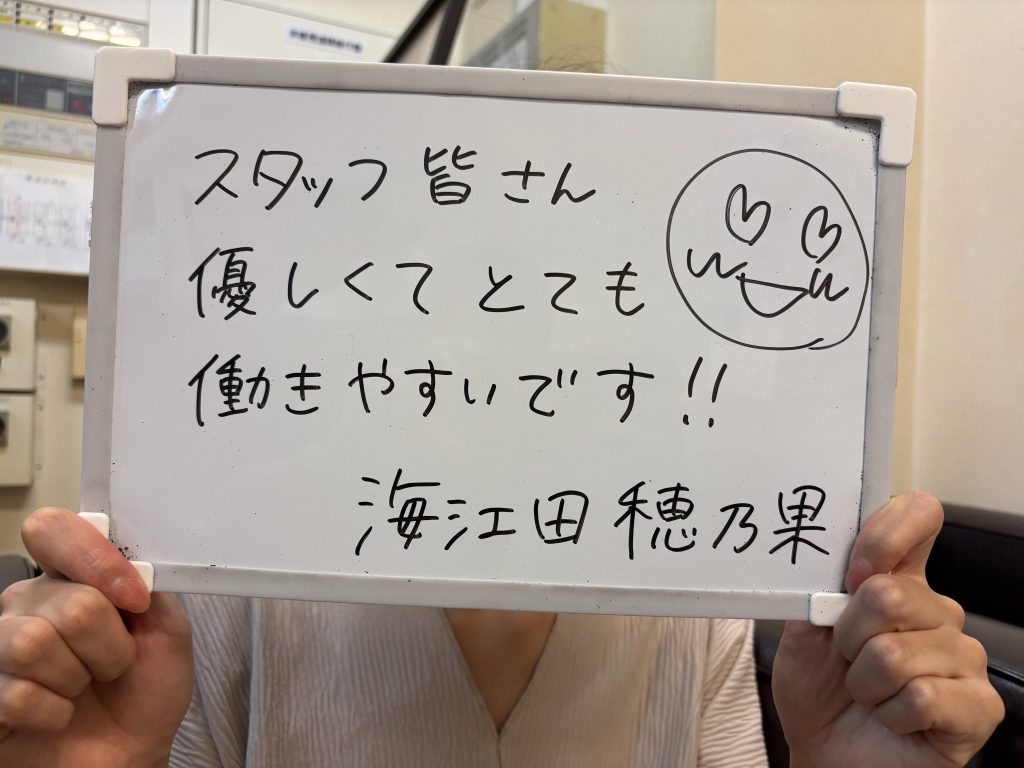 スタッフ皆さん
優しくてとても
働きやすいです!!
海江田穂乃果